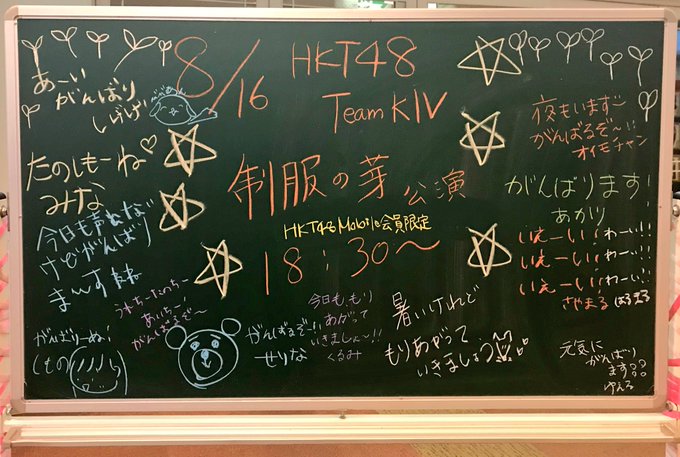 8/16
HKT48
Team KIV
制服の芽 公演
HKT48 Mobile会員限定
18:30〜
あーい
がんばり
たのしもーね♡
みな
今日も
けどがんばり
まーす
がんばるぞ〜
がんばりーぬ!
がんばるぞ〜!
せりな
今日も、もり
あがって
いきましょ〜!!
くるみ
暑いけれど
もりあがって
いきましょう
夜もいます〜
がんばるぞ〜!!
オイモチャン
がんばります!
あかり
いえーい!わーい!!
いえーい!わーい!!
いえーい!わーい!!
さやまる はるたる
元気に
がんばり
ます